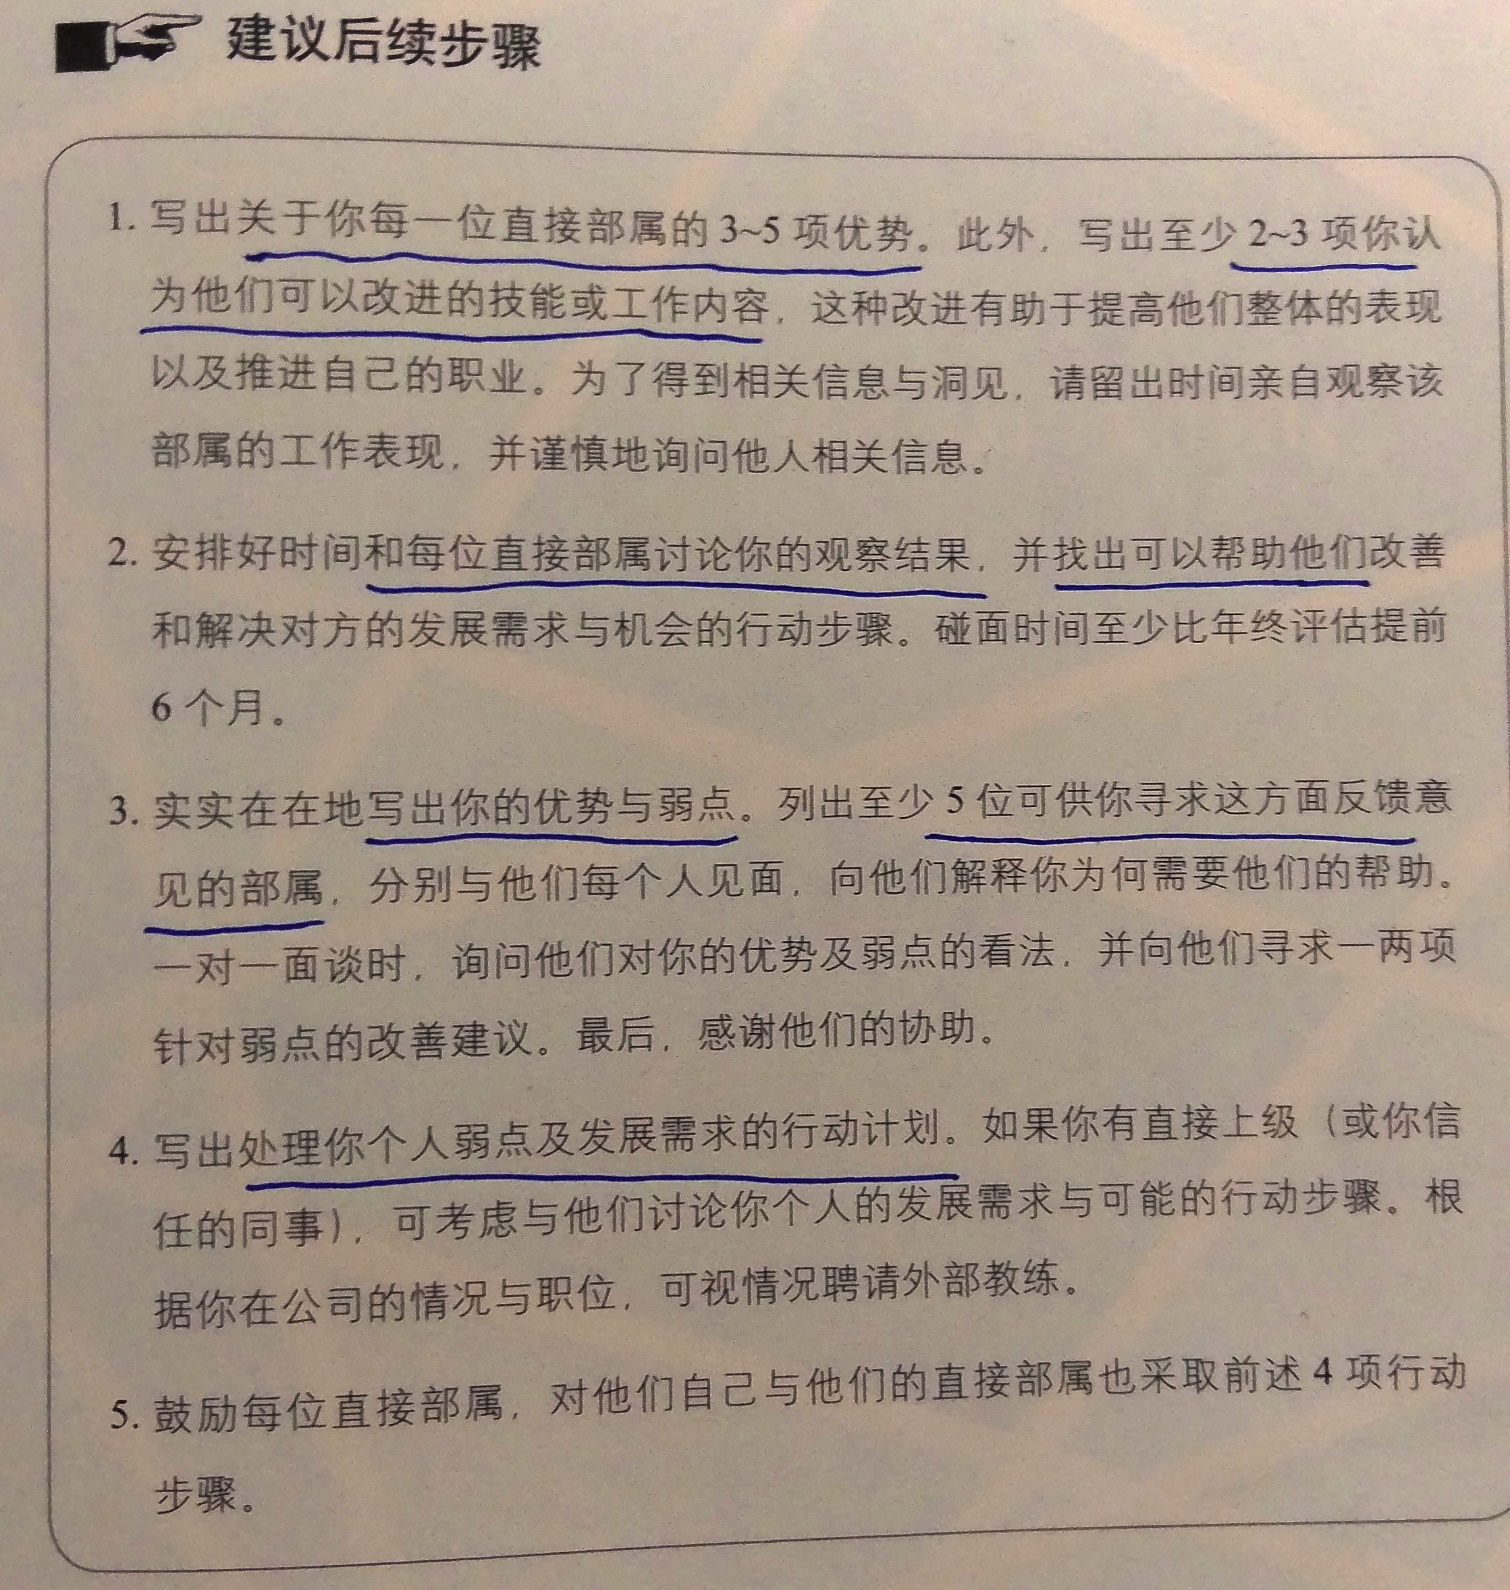 建议后续步骤
1. 写出关于你每一位直接部属的 3~5 项优势。此外，写出至少 2~3 项你认
为他们可以改进的技能或工作内容，这种改进有助于提高他们整体的表现
以及推进自己的职业。为了得到相关信息与洞见，请留出时间亲自观察该
部属的工作表现，并谨慎地询问他人相关信息。
2. 安排好时间和每位直接部属讨论你的观察结果，并找出可以帮助他们改善
和解决对方的发展需求与机会的行动步骤。碰面时间至少比年终评估提前
6 个月。
3. 实实在在地写出你的优势与弱点。列出至少 5 位可供你寻求这方面反馈意
见的部属，分别与他们每个人见面，向他们解释你为何需要他们的帮助。
一对一面谈时，询问他们对你的优势及弱点的看法，并向他们寻求一两项
针对弱点的改善建议。最后，感谢他们的协助。
4. 写出处理你个人弱点及发展需求的行动计划。如果你有直接上级（或你信
任的同事），可考虑与他们讨论你个人的发展需求与可能的行动步骤。根
据你在公司的情况与职位，可视情况聘请外部教练。
5. 鼓励每位直接部属，对他们自己与他们的直接部属也采取前述 4 项行动
步骤。